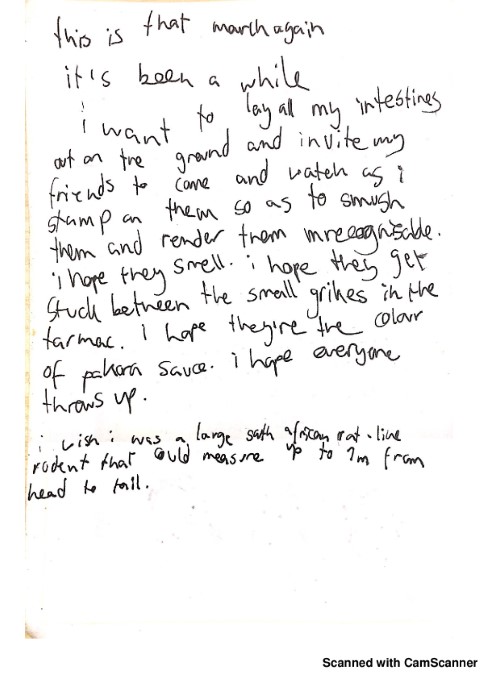 this is that march again
it's been a while
i want to lay all my intestines
out on the ground and invite my
friends to come and watch as i
stamp on them so as to smush
them and render them unrecognisable.
i hope they smell. i hope they get
stuck between the small grikes in the
tarmac. i hope they're the colour
of pakora sauce. i hope everyone
throws up.
i wish i was a large south african rat-like
rodent that could measure up to 1m from
head to tail.
Scanned with CamScanner